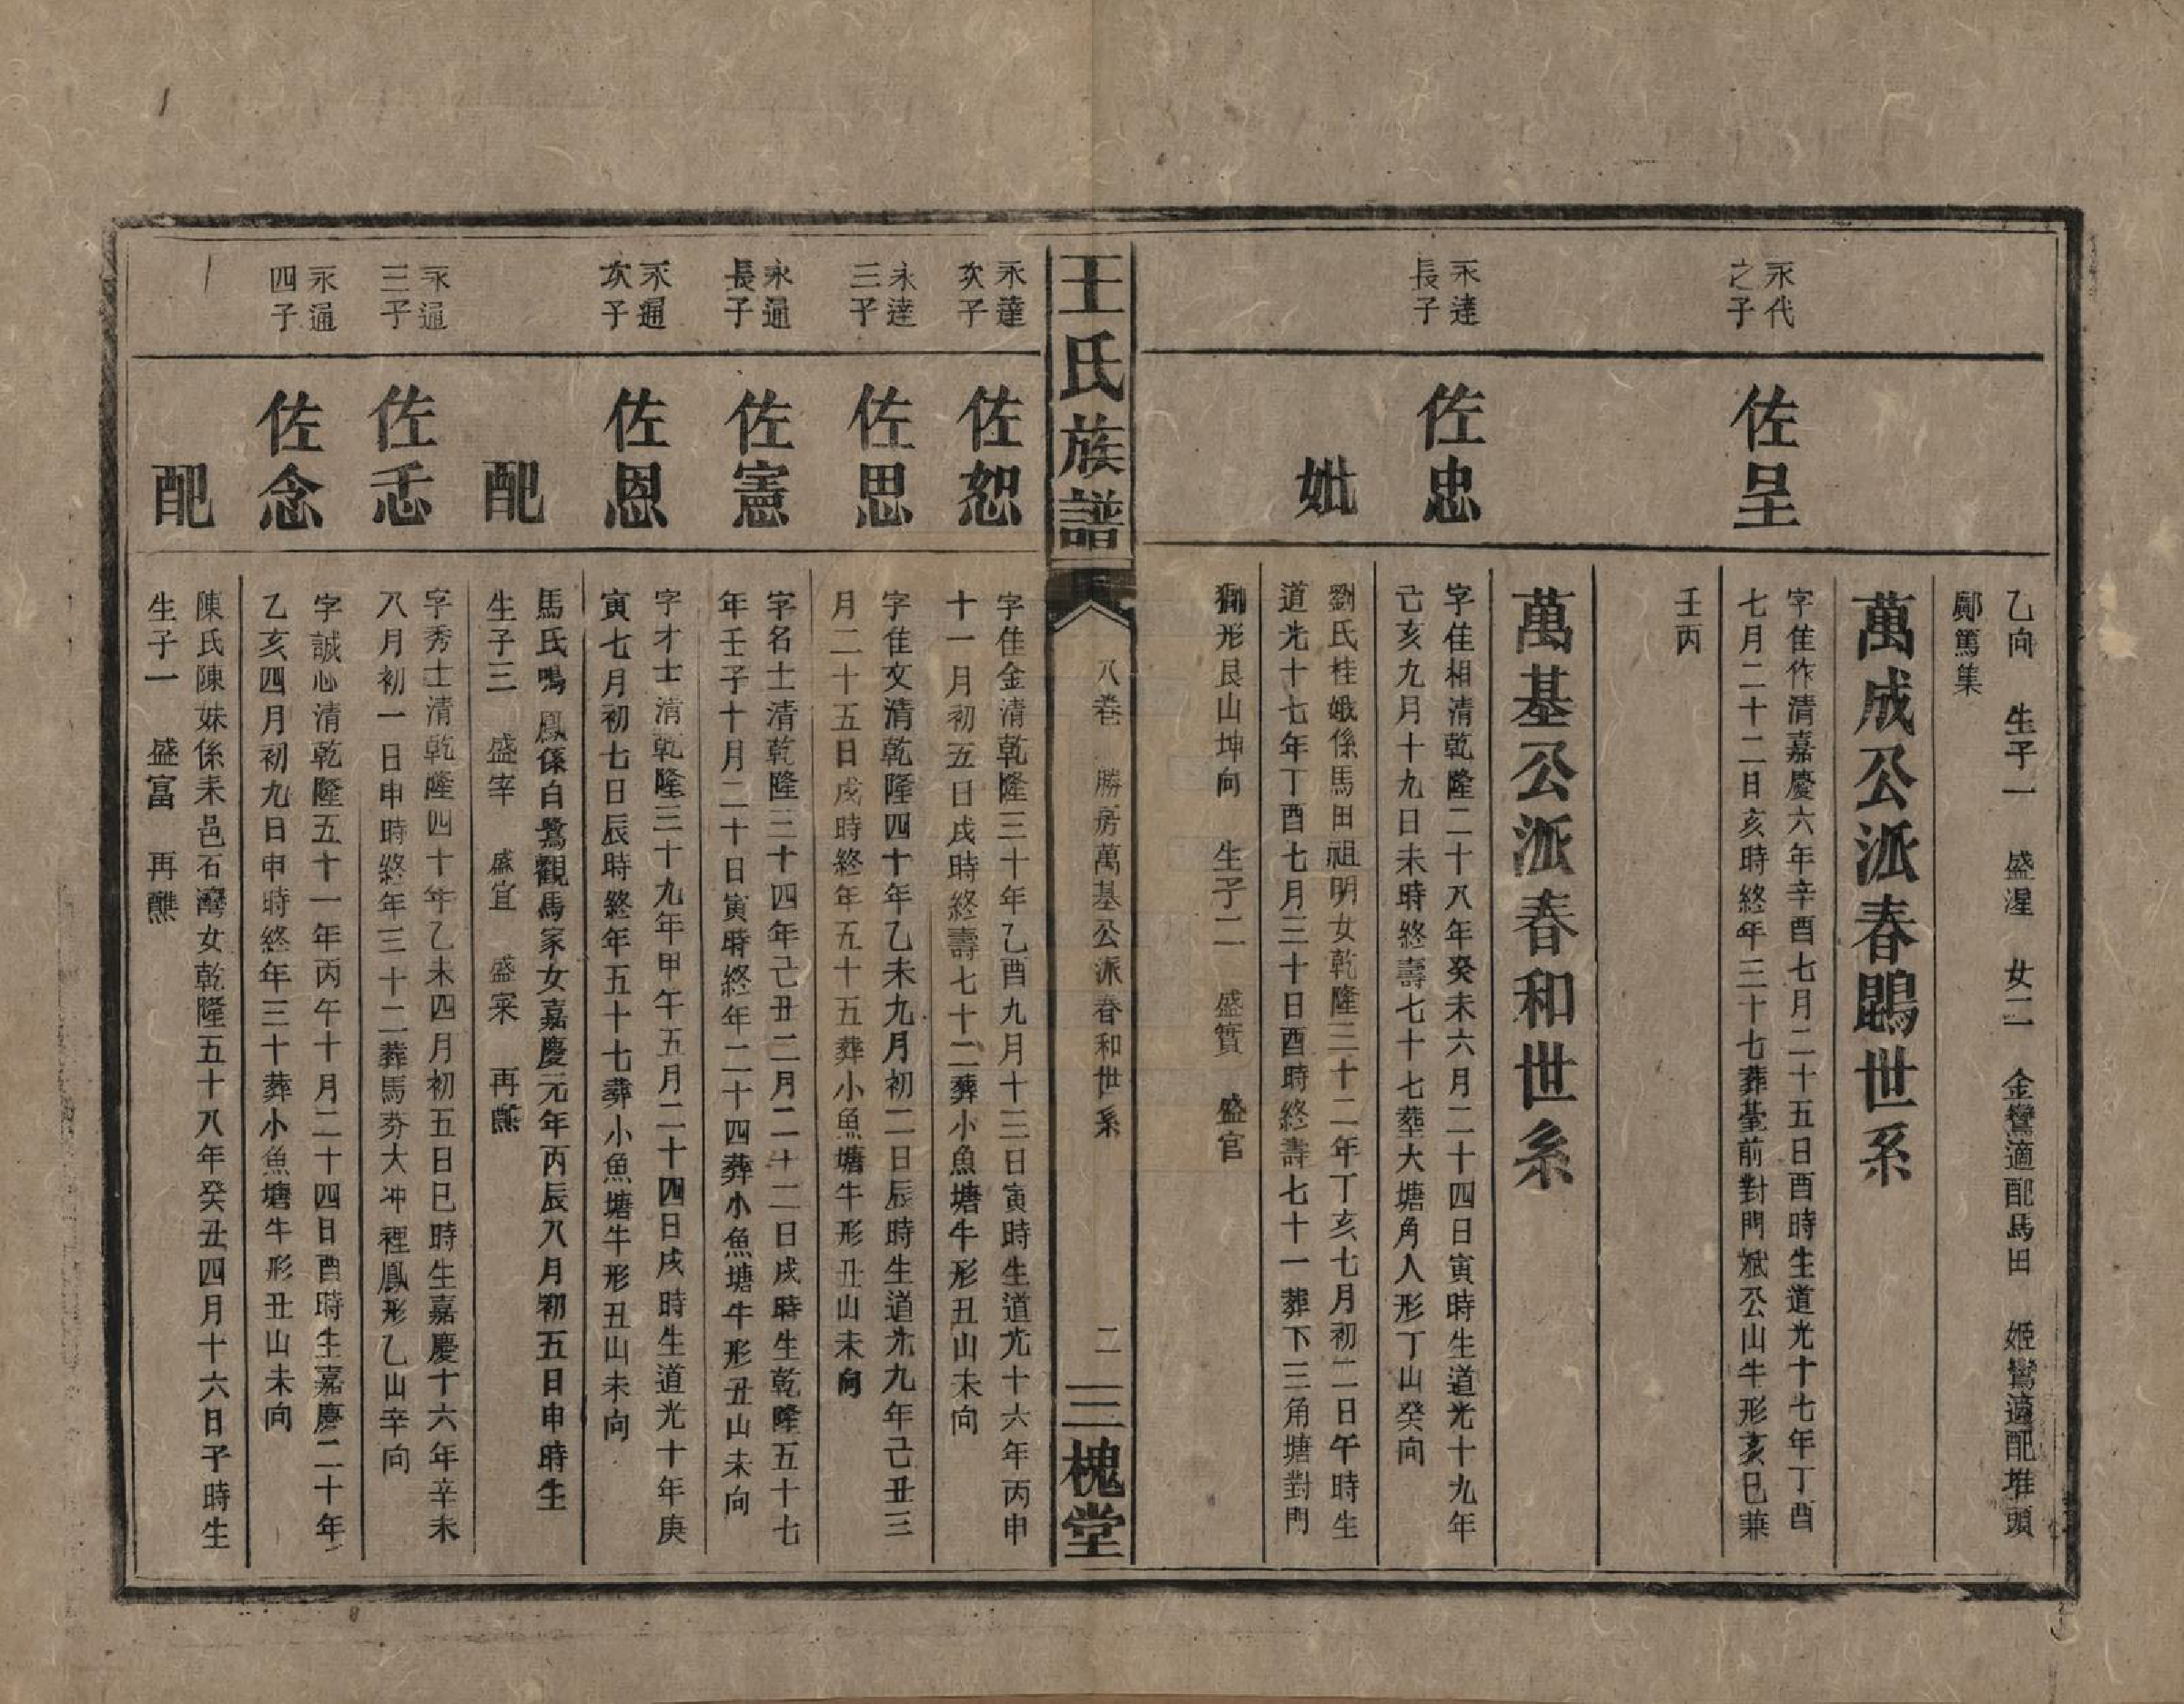 乙向 生子一 盛渥 女二 金鸞適配馬田 姬鸞適配堆頭
鄺篤集
萬成公派春鵾世系
永代
之子
佐呈
字佳作清嘉慶六年辛酉七月二十五日酉時生道光十七年丁酉
七月二十二日亥時終年三十七葬臺前對門虎公山牛形亥巳兼
壬丙
萬基公派春和世系
永達
長子
佐忠
字佳相清乾隆二十八年癸未六月二十四日寅時生道光十九年
己亥九月十九日未時終壽七十七塟大塘角人形丁山癸向
妣
劉氏桂娥係馬田祖明女乾隆三十二年丁亥七月初二日午時生
道光十七年丁酉七月三十日酉時終壽七十一葬下三角塘對門
獅形艮山坤向 生子二 盛賓 盛官
王氏族譜 八卷 勝房萬基公派春和世系 二 三槐堂
永達
次子
佐恕
字佳金清乾隆三十年乙酉九月十三日寅時生道光十六年丙申
十一月初五日戌時終壽七十二葬小魚塘牛形丑山未向
永達
三子
佐思
字佳文清乾隆四十年乙未九月初二日辰時生道光九年己丑三
月二十五日戌時終年五十五葬小魚塘牛形丑山未向
永通
長子
佐憲
字名士清乾隆三十四年己丑二月二十二日戌時生乾隆五十七
年壬子十月二十日寅時終年二十四葬小魚塘牛形丑山未向
永通
次子
佐恩
字才士清乾隆三十九年甲午五月二十四日戌時生道光十年庚
寅七月初七日辰時終年五十七葬小魚塘牛形丑山未向
配
馬氏鳴鳳係白鷺觀馬家女嘉慶元年丙辰八月初五日申時生
生子三 盛宰 盛宜 盛寀 再醮
永通
三子
佐恁
字秀士清乾隆四十年乙未四月初五日巳時生嘉慶十六年辛未
八月初一日申時終年三十二葬馬芬大冲裡鳳形乙山辛向
永通
四子
佐念
字誠心清乾隆五十一年丙午十月二十四日酉時生嘉慶二十年
乙亥四月初九日申時終年三十葬小魚塘牛形丑山未向
配
陳氏陳妹係耒邑石灣女乾隆五十八年癸丑四月十六日子時生
生子一 盛富 再醮